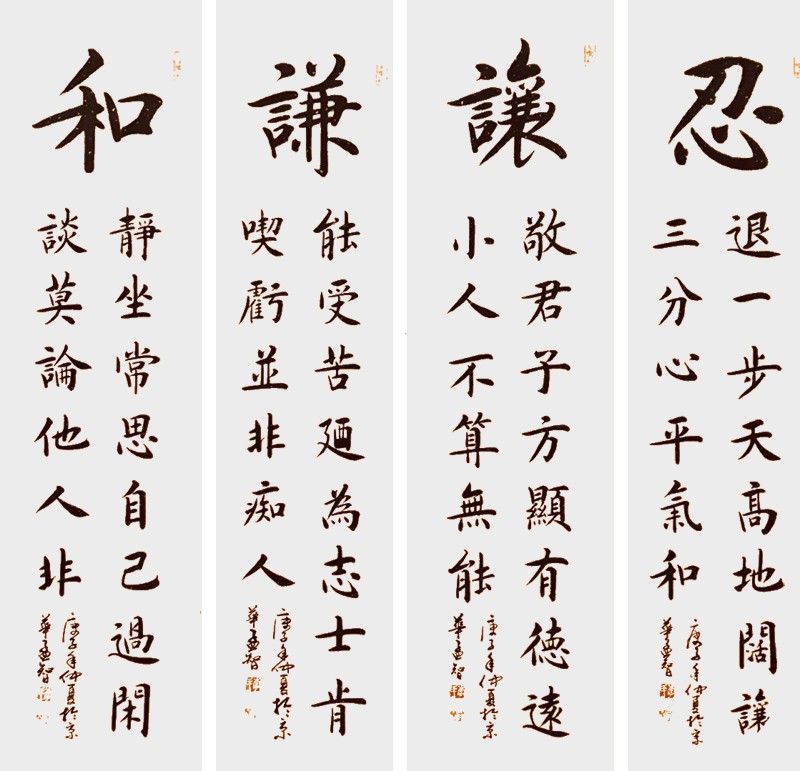 忍
退一步天高地闊讓
三分心平氣和
庚子年仲夏於京
華孟智
讓
敬君子方顯有德遠
小人不算無能
庚子年仲夏於京
華孟智
謙
能受苦廼為志士肯
喫虧並非痴人
庚子年仲夏於京
華孟智
和
靜坐常思自己過閑
談莫論他人非
庚子年仲夏於京
華孟智